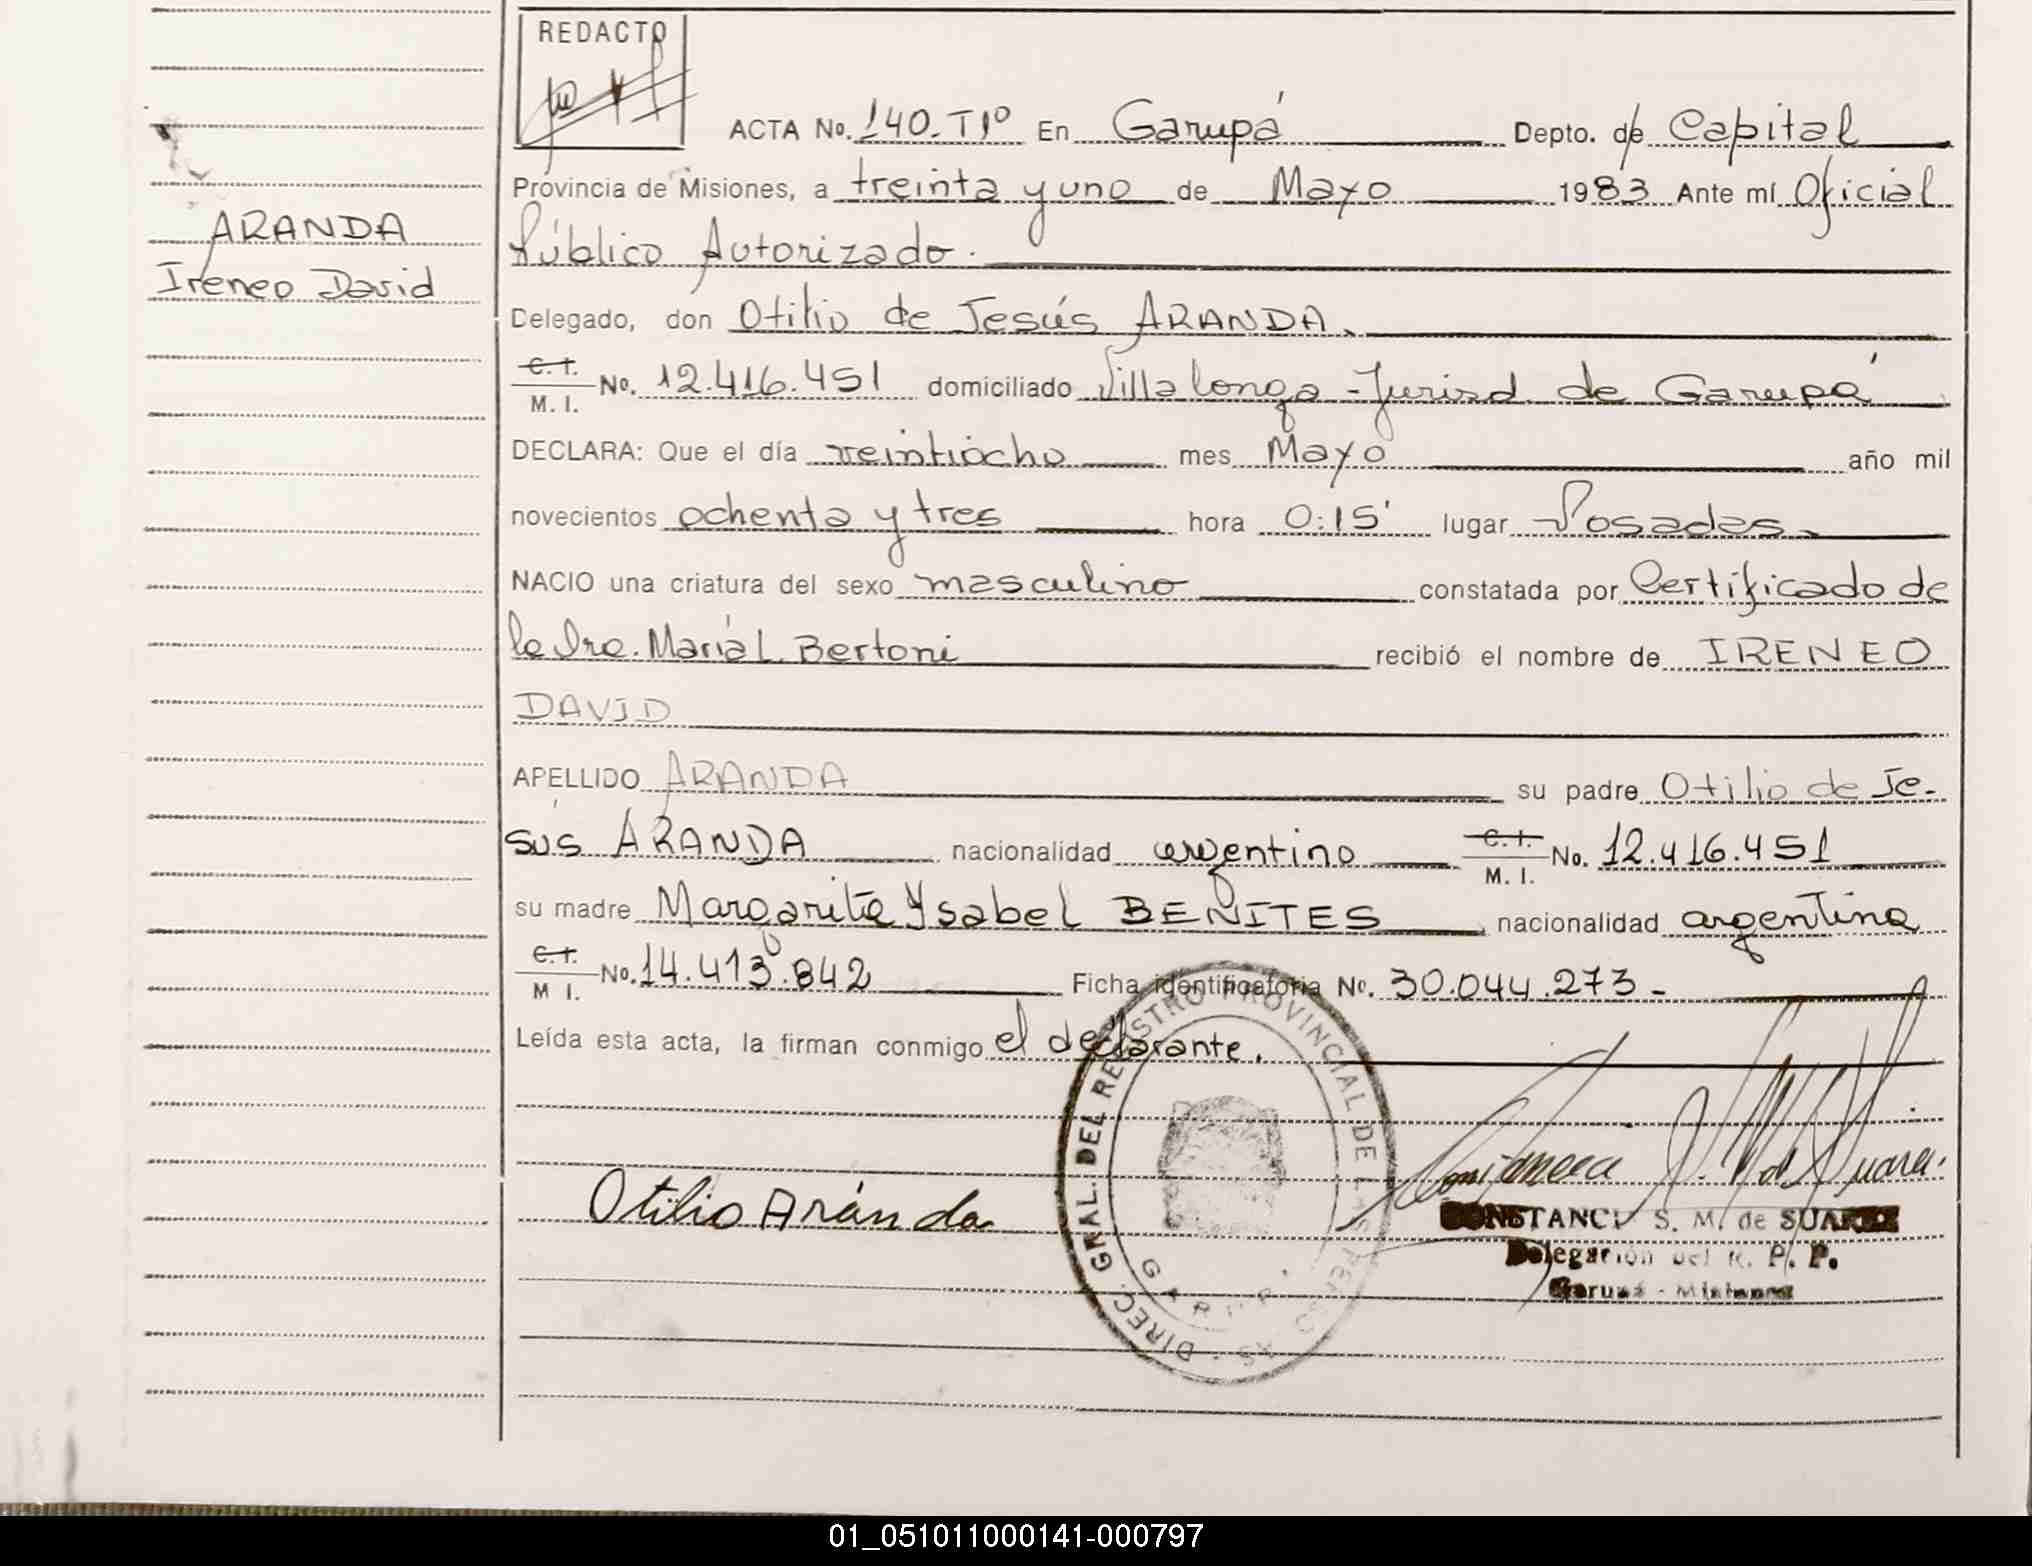 REDACTO
ACTA No. 140. T1º En Garupá Depto. de Capital
Provincia de Misiones, a treinta y uno de Mayo 1983 Ante mí Oficial
Público Autorizado.
ARANDA
Ireneo David
Delegado, don Otilio de Jesús ARANDA.
C. I.
M. I. No. 12.416.451 domiciliado Villalonga - Jurisd. de Garupá
DECLARA: Que el día veintiocho mes Mayo año mil
novecientos ochenta y tres hora 0:15' lugar Posadas
NACIO una criatura del sexo masculino constatada por Certificado de
la Dra. María L. Bertoni recibió el nombre de IRENEO
DAVID
APELLIDO ARANDA su padre Otilio de Je-
sús ARANDA nacionalidad argentino C. I.
M. I. No. 12.416.451
su madre Margarita Ysabel BENITES nacionalidad argentina
C. I.
M. I. No. 14.413.842 Ficha identificatoria No. 30.044.273-
Leída esta acta, la firman conmigo el declarante.
DIREC. GRAL. DEL REGISTRO PROVINCIAL DE LAS PERSONAS
GARUPA
Otilio Aránda
CONSTANCIA S. M. de SUAREZ
Delegación del R. P. P.
Garupá - Misiones
01_051011000141-000797